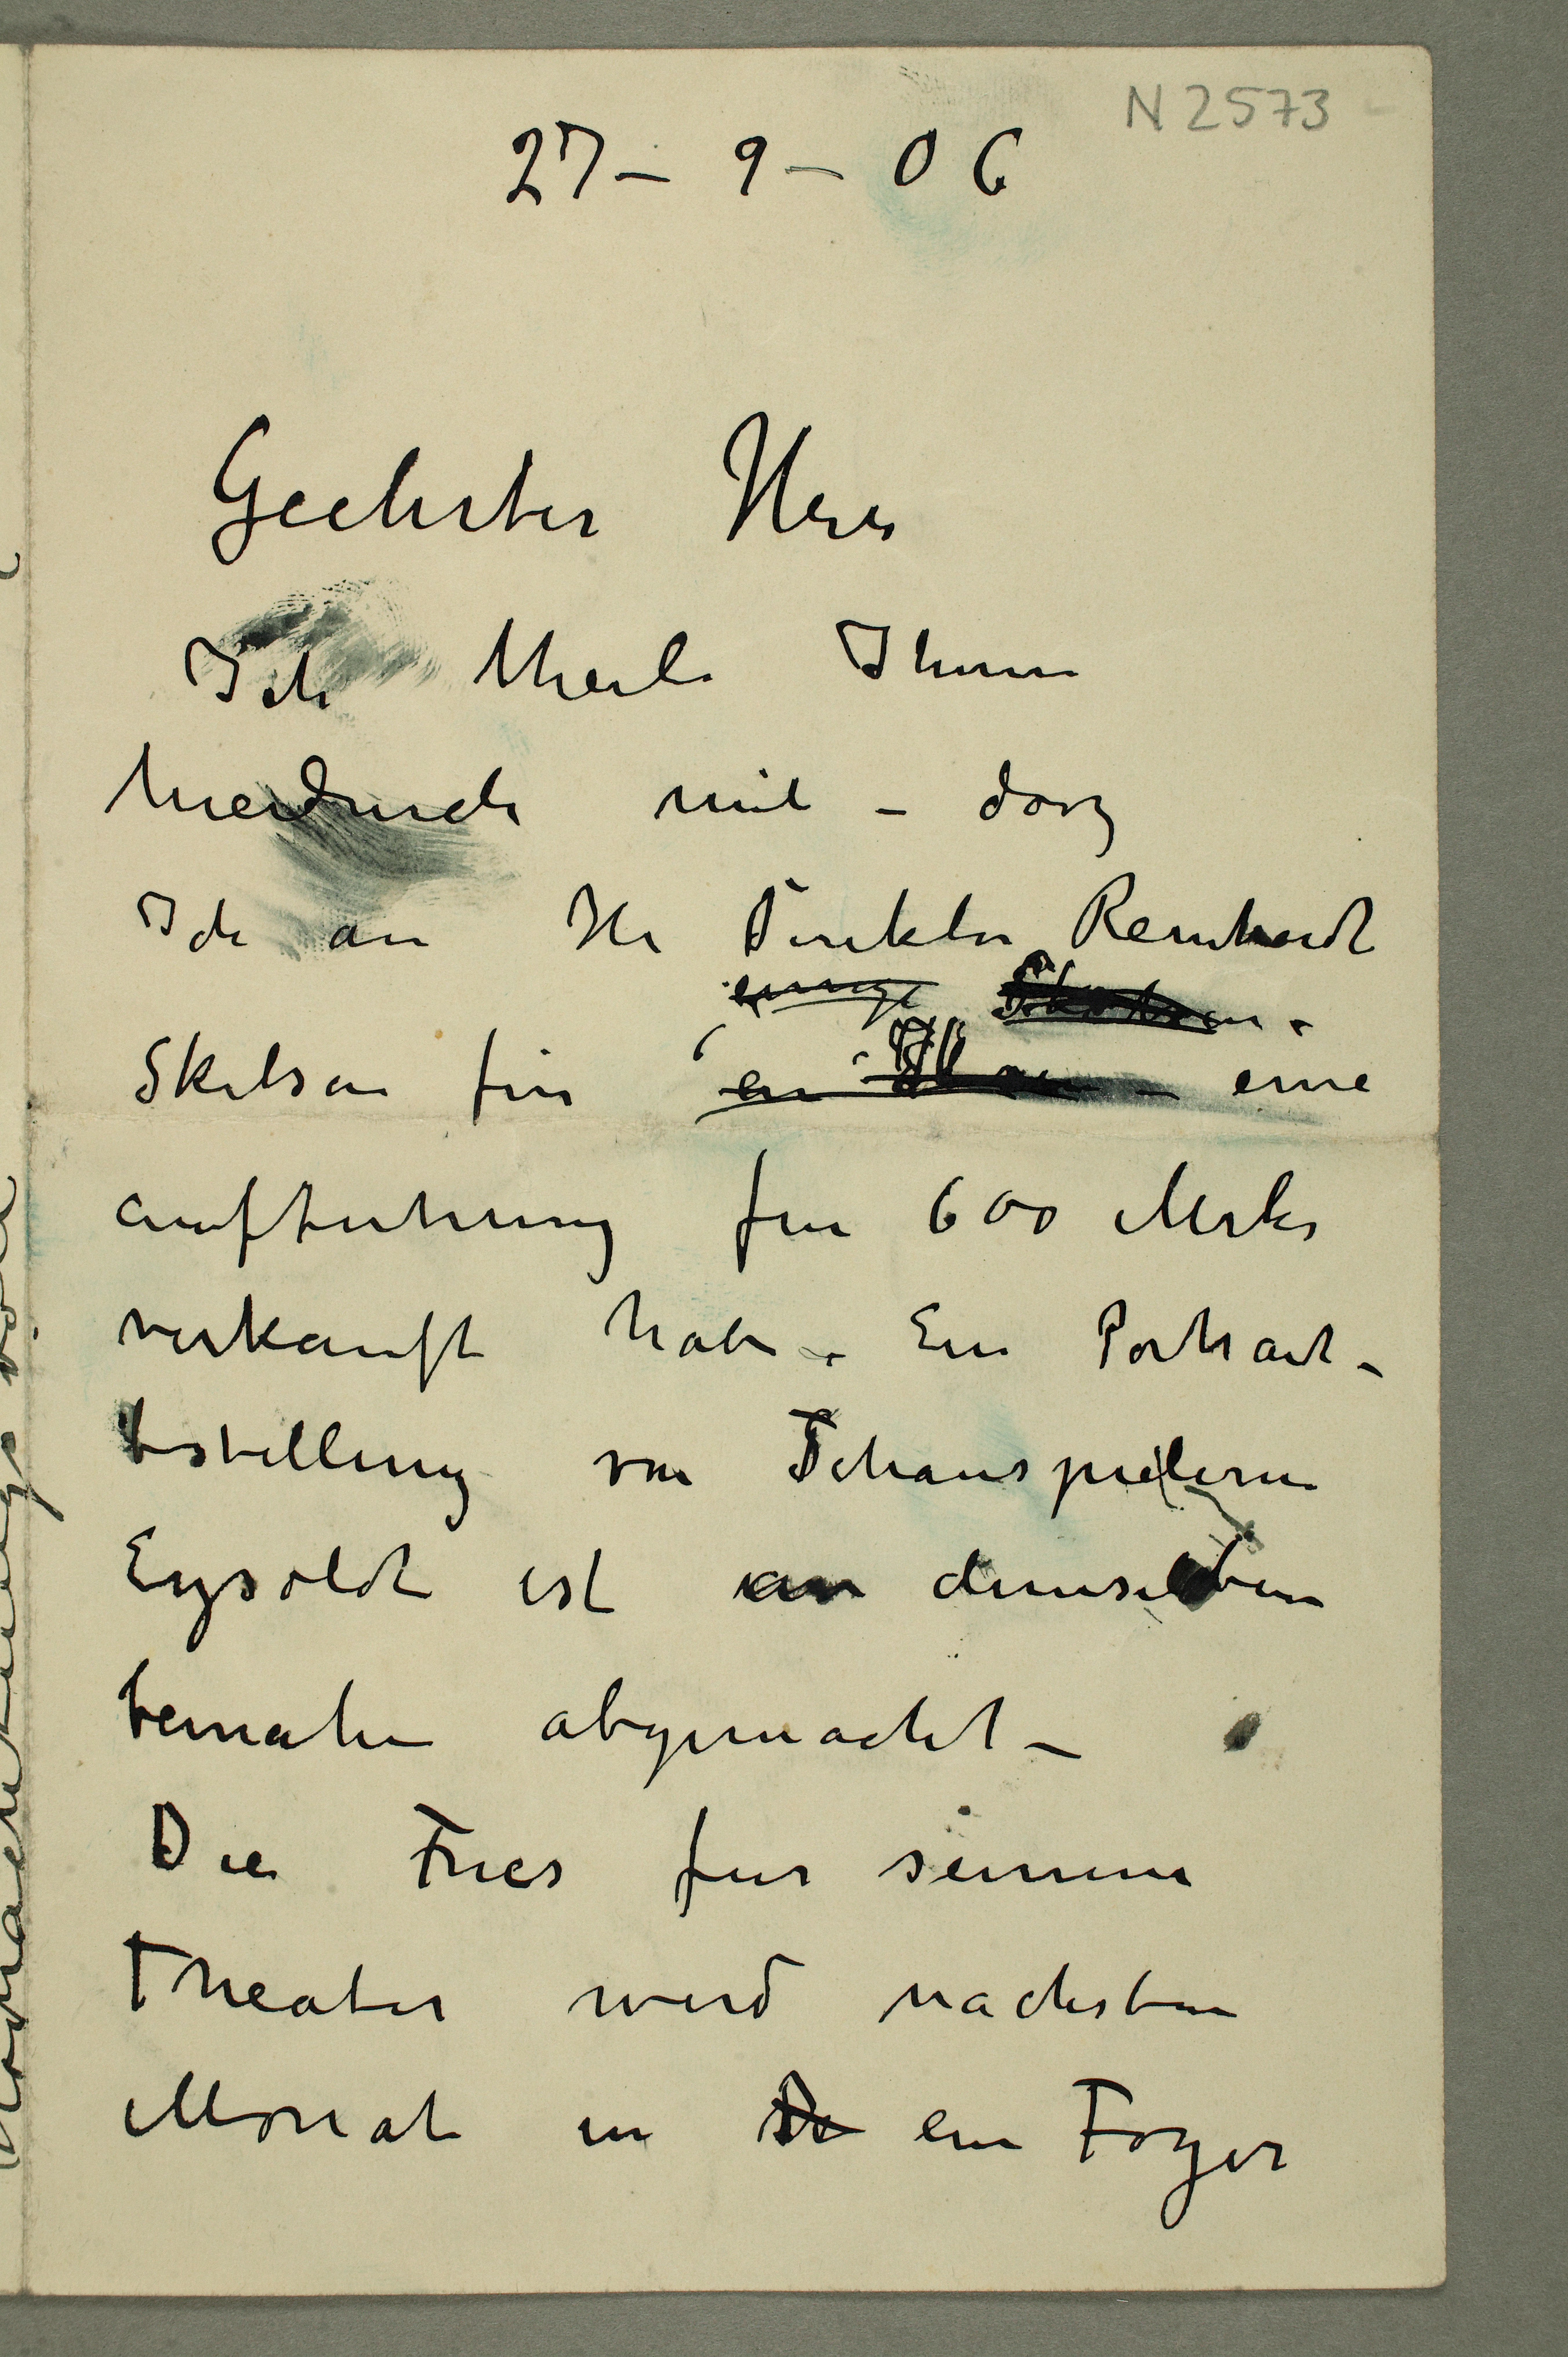 N 2573
27 – 9 – 06
Geehrter Herr
Ich theile Ihnen
hierdurch mit – dasz
Ich an Hr Direktor Reinhardt
einige Skitsen.
Skitsen für ein – eine
aufführung fur 600 Marks
verkauft habe. Ein Portrait-
bestellung von Schauspielerin
Eysoldt ist an demselben
beinahe abgemacht –
Die Fries fur seinem
Theater wird nachsten
Monat in De ein Foyer